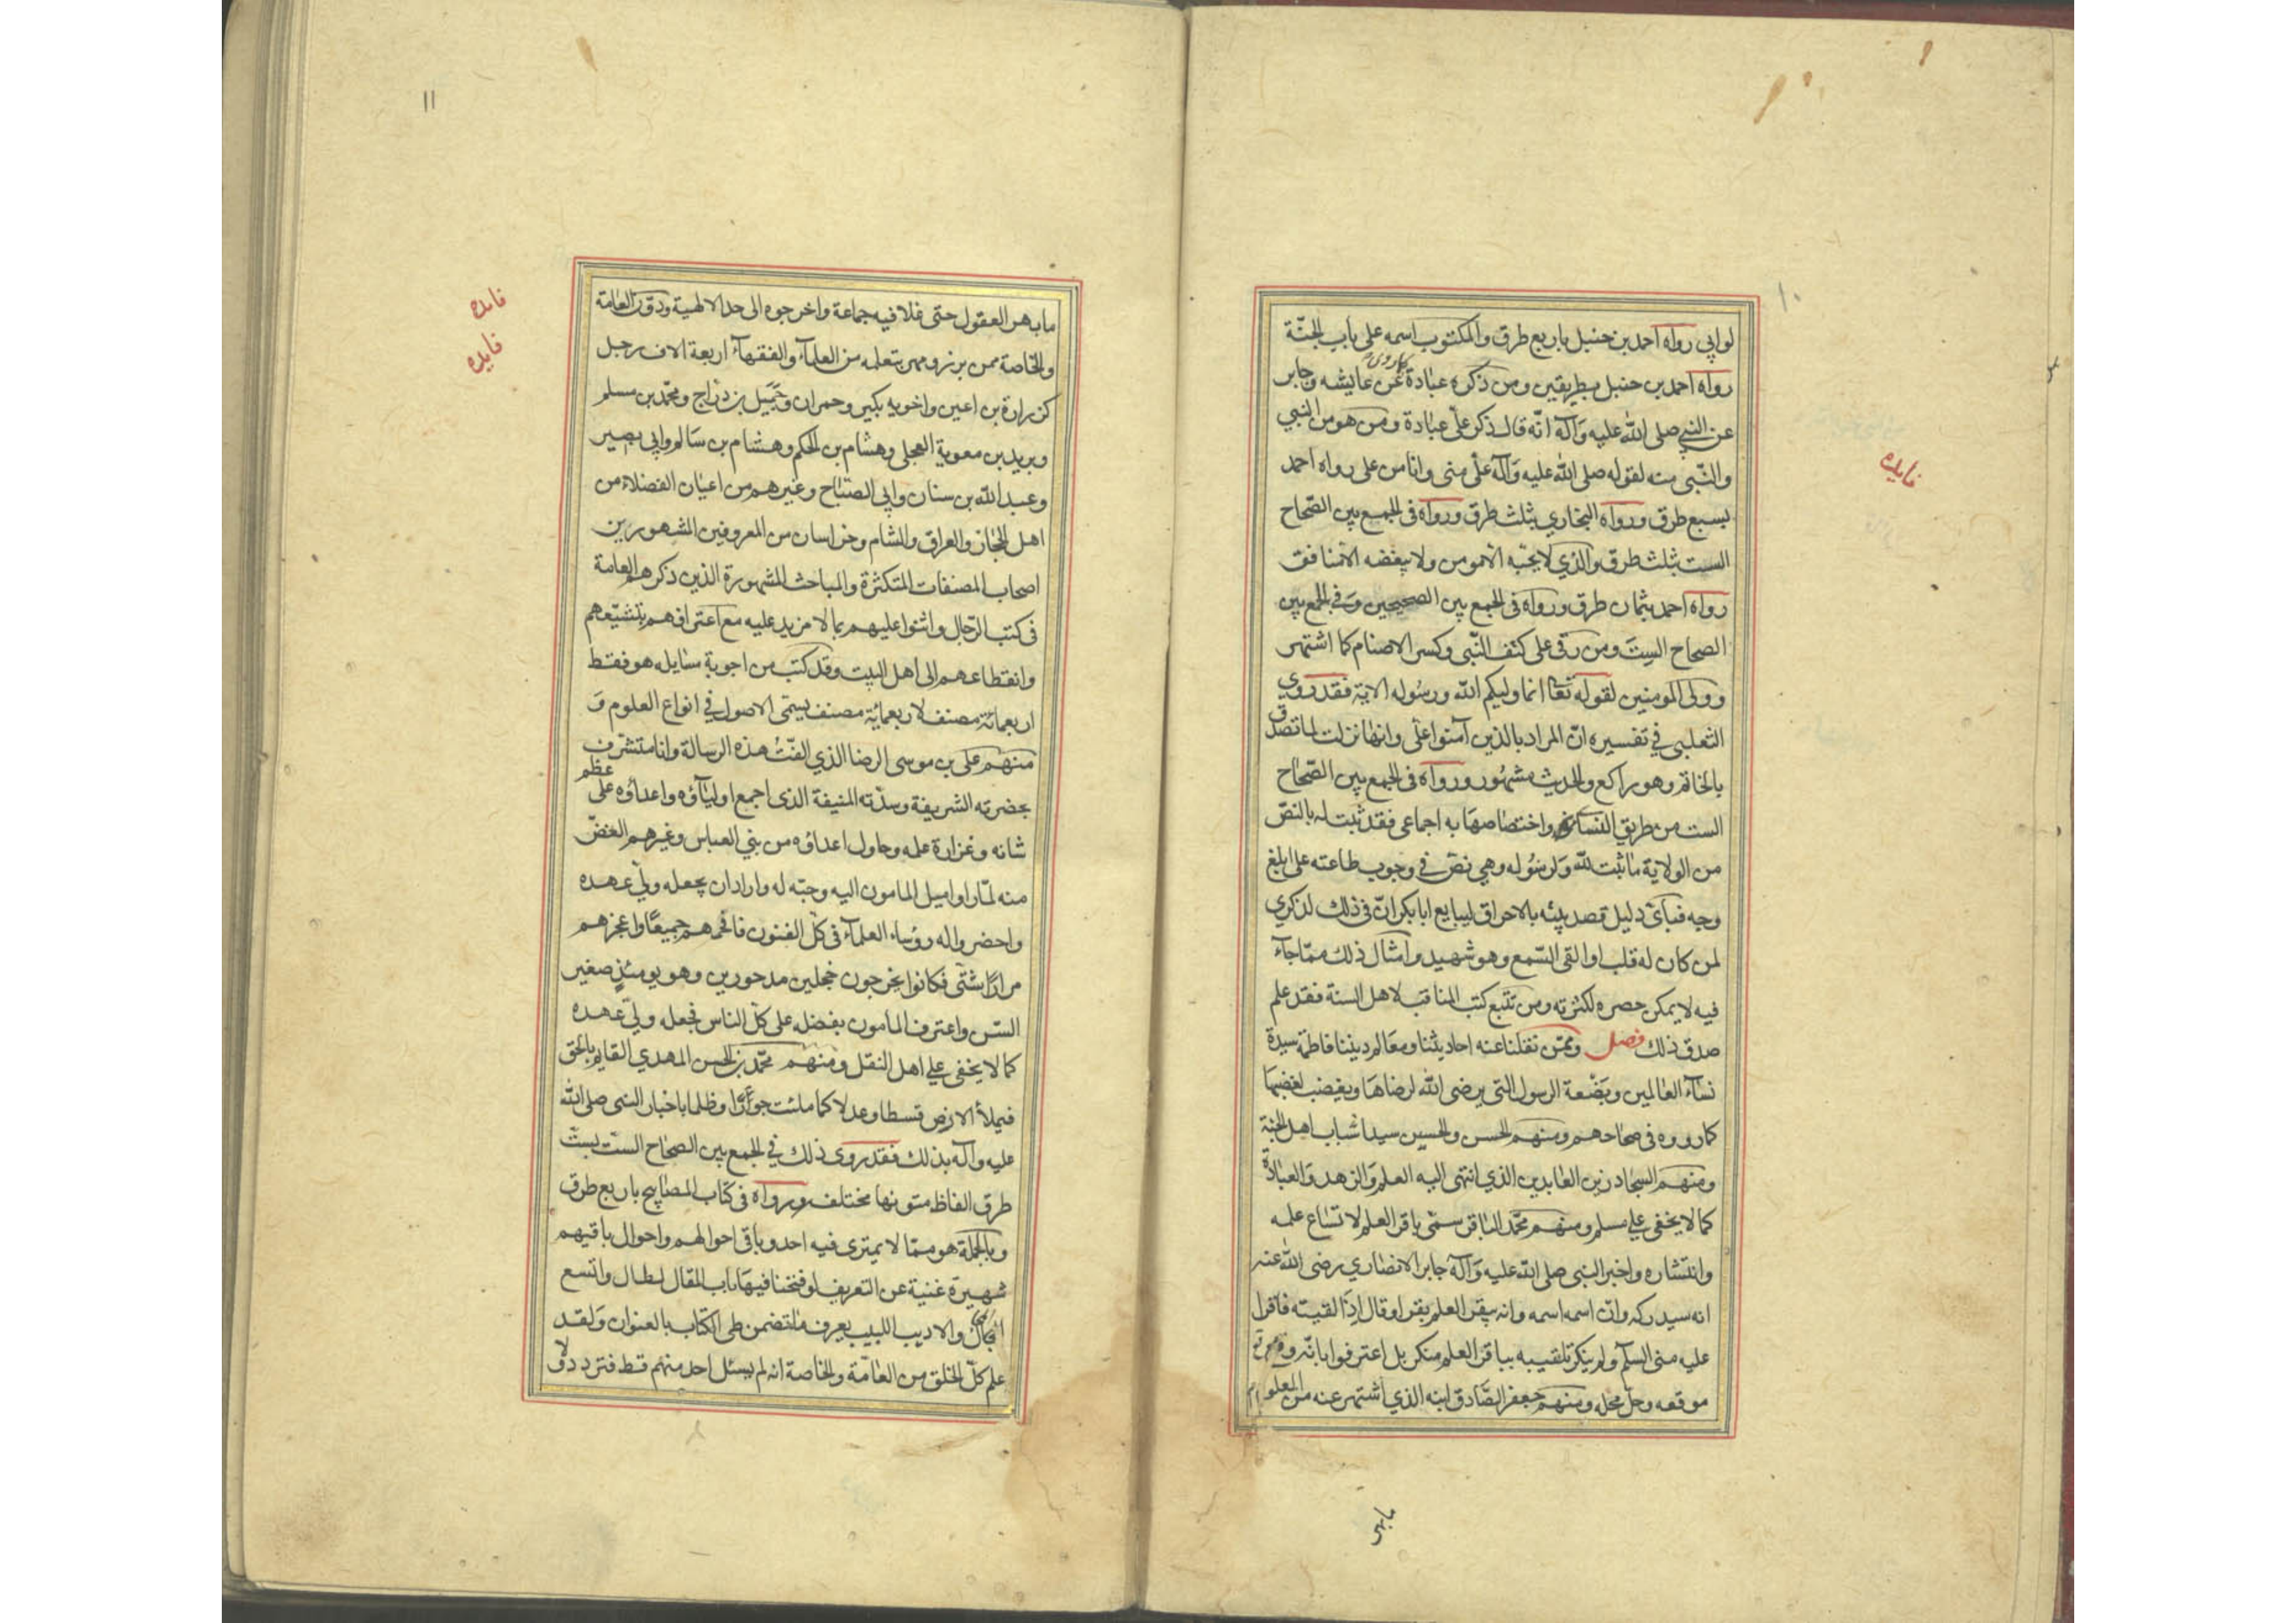 ١٠
لوابي رواه احمد بن حنبل باربع طرق والمكتوب اسمه على باب الجنّة
رواه احمد بن حنبل بطريقين ومن ذكره عبادة كما روى عن عايشه وجابر
عن النبي صلى الله عليه وآله انّه قال ذكر علّى عبادة ومن هو من النبي
والنّبى منه لقوله صلى الله عليه وآله علّى منى وانا من على رواه احمد
بسبع طرق ورواه البخاري بثلث طرق ورواه فى الجمع بين الصّحاح
الست بثلث طرق والذي لا يحبّه الّا مومن ولا يبغضه الّا منافق
رواه احمد بثمان طرق ورواه فى الجمع بين الصحيحين وفي الجمع بين
الصحاح الستّ ومن رقى على كتف النّبى وكسر الاصنام كما اشتهر
وولى المومنين لقوله تعا انما وليكم الله ورسوله الاية فقد روي
الثعلبى في تفسيره انّ المراد بالذين آمنوا علّى وانها نزلت لما تصدق
بالخاتم وهو راكع والحديث مشهور ورواه فى الجمع بين الصّحاح
الست من طريق النسائى واختصاصها به اجماعى فقد ثبت له بالنصّ
من الولاية ما ثبت لله ولرسوله وهي نصّ في وجوب طاعته على ابلغ
وجه فباىّ دليل قصد بيته بالاحراق ليبايع ابا بكر انّ فى ذلك لذكري
لمن كان له قلب او القى السّمع وهو شهيد وامثال ذلك ممّا جآء
فيه لا يمكن حصره لكثرته ومن تتبع كتب المناقب لاهل السنة فقد علم
صدق ذلك فصل وممّن نقلنا عنه احاديثنا ومعالم ديننا فاطمة سيدة
نسآء العالمين وبَضْعة الرسول التى يرضى الله لرضاها ويغضب لغضبها
كما رووه فى صحاحهم ومنهم الحسن والحسين سيدا شباب اهل الجنة
ومنهم السجاد زين العابدين الذي انتهى اليه العلم والزهد والعبادة
كما لا يخفى على مسلم ومنهم محمّد الباقر سمّى باقر العلم لاتساع علمه
وانتشاره واخبر النبى صلى الله عليه وآله جابر الانصاري رضى الله عنه
انه سيدركه وانّ اسمه اسمه وانه يبقر العلم بقرا وقال اذا لقيته فاقرا
عليه منى السلم ولم ينكر تلقيبه بباقر العلم منكر بل اعترفوا بانّه وقع
موقعه وحلّ محله ومنهم جعفر الصّادق ابنه الذي اشتهر عنه من العلوم
فايده
١١
ما بهر العقول حتى غلا فيه جماعة واخرجوه الى حد الالهية ودوّن العامة
والخاصة ممن برز ومهر بتعلمه من العلمآء والفقهآء اربعة الاف رجل
كزرارة بن اعين واخويه بكير وحمران وجَمَيل بن درّاج ومحمّد بن مسلم
وبريد بن معوية العجلى وهشام بن الحكم وهشام بن سالم وابي بصير
وعبد الله بن سنان وابى الصّباح وغيرهم من اعيان الفضلاء من
اهل الحجاز والعراق والشام وخراسان من المعروفين المشهورين
اصحاب المصنفات المتكثرة والمباحث المشهورة الذين ذكرهم العامة
فى كتب الرّجال واثنوا عليهم بما لا مزيد عليه مع اعترافهم بتشيّعهم
وانقطاعهم الى اهل البيت وقد كتب من اجوبة مسايله هو فقط
اربعمائة مصنف لاربعمائة مصنف يسمّى الاصول في انواع العلوم و
منهم على بن موسى الرضا الذي الّفتُ هذه الرسالة وانا متشرف
بحضرته الشريفة وسدّته المنيفة الذى اجمع اوليآؤه واعداؤه على عظم
شانه وغزارة علمه وحاول اعداؤه من بني العباس وغيرهم الغضّ
منه لمّا راوا ميل المامون اليه وحبّه له وارادان يجعله ولىّ عهده
واحضروا له رؤساء العلمآء فى كلّ الفنون فافحمهم جميعًا واعجزهم
مرارًا شتّى فكانوا يخرجون خجلين مدحورين وهو يومئذٍ صغير
السّن واعترف المامون بفضله على كلّ الناس فجعله ولىّ عهده
كما لا يخفى على اهل النقل ومنهم محمّد بن الحسن المهدي القايم بالحق
فيملأ الارض قسطا وعدلا كما ملئت جورًا وظلما باخبار النبى صلى الله
عليه وآله بذلك فقد روى ذلك في الجمع بين الصحاح الست بستّ
طرق الفاظ متونها مختلف ورواه فى كتاب المصابيح باربع طرق
وبالجملة هو ممّا لا يمترى فيه احد وباقى احوالهم واحوال باقيهم
شهيرة غنية عن التعريف لو فتحنا فيها باب المقال لطال واتسع
المجال والاديب اللبيب يعرف ما تضمن طى الكتاب بالعنوان ولقد
علم كلّ الخلق من العامّة والخاصة انه لم يسئل احد منهم قط فتردد ولا
فايده
فايده